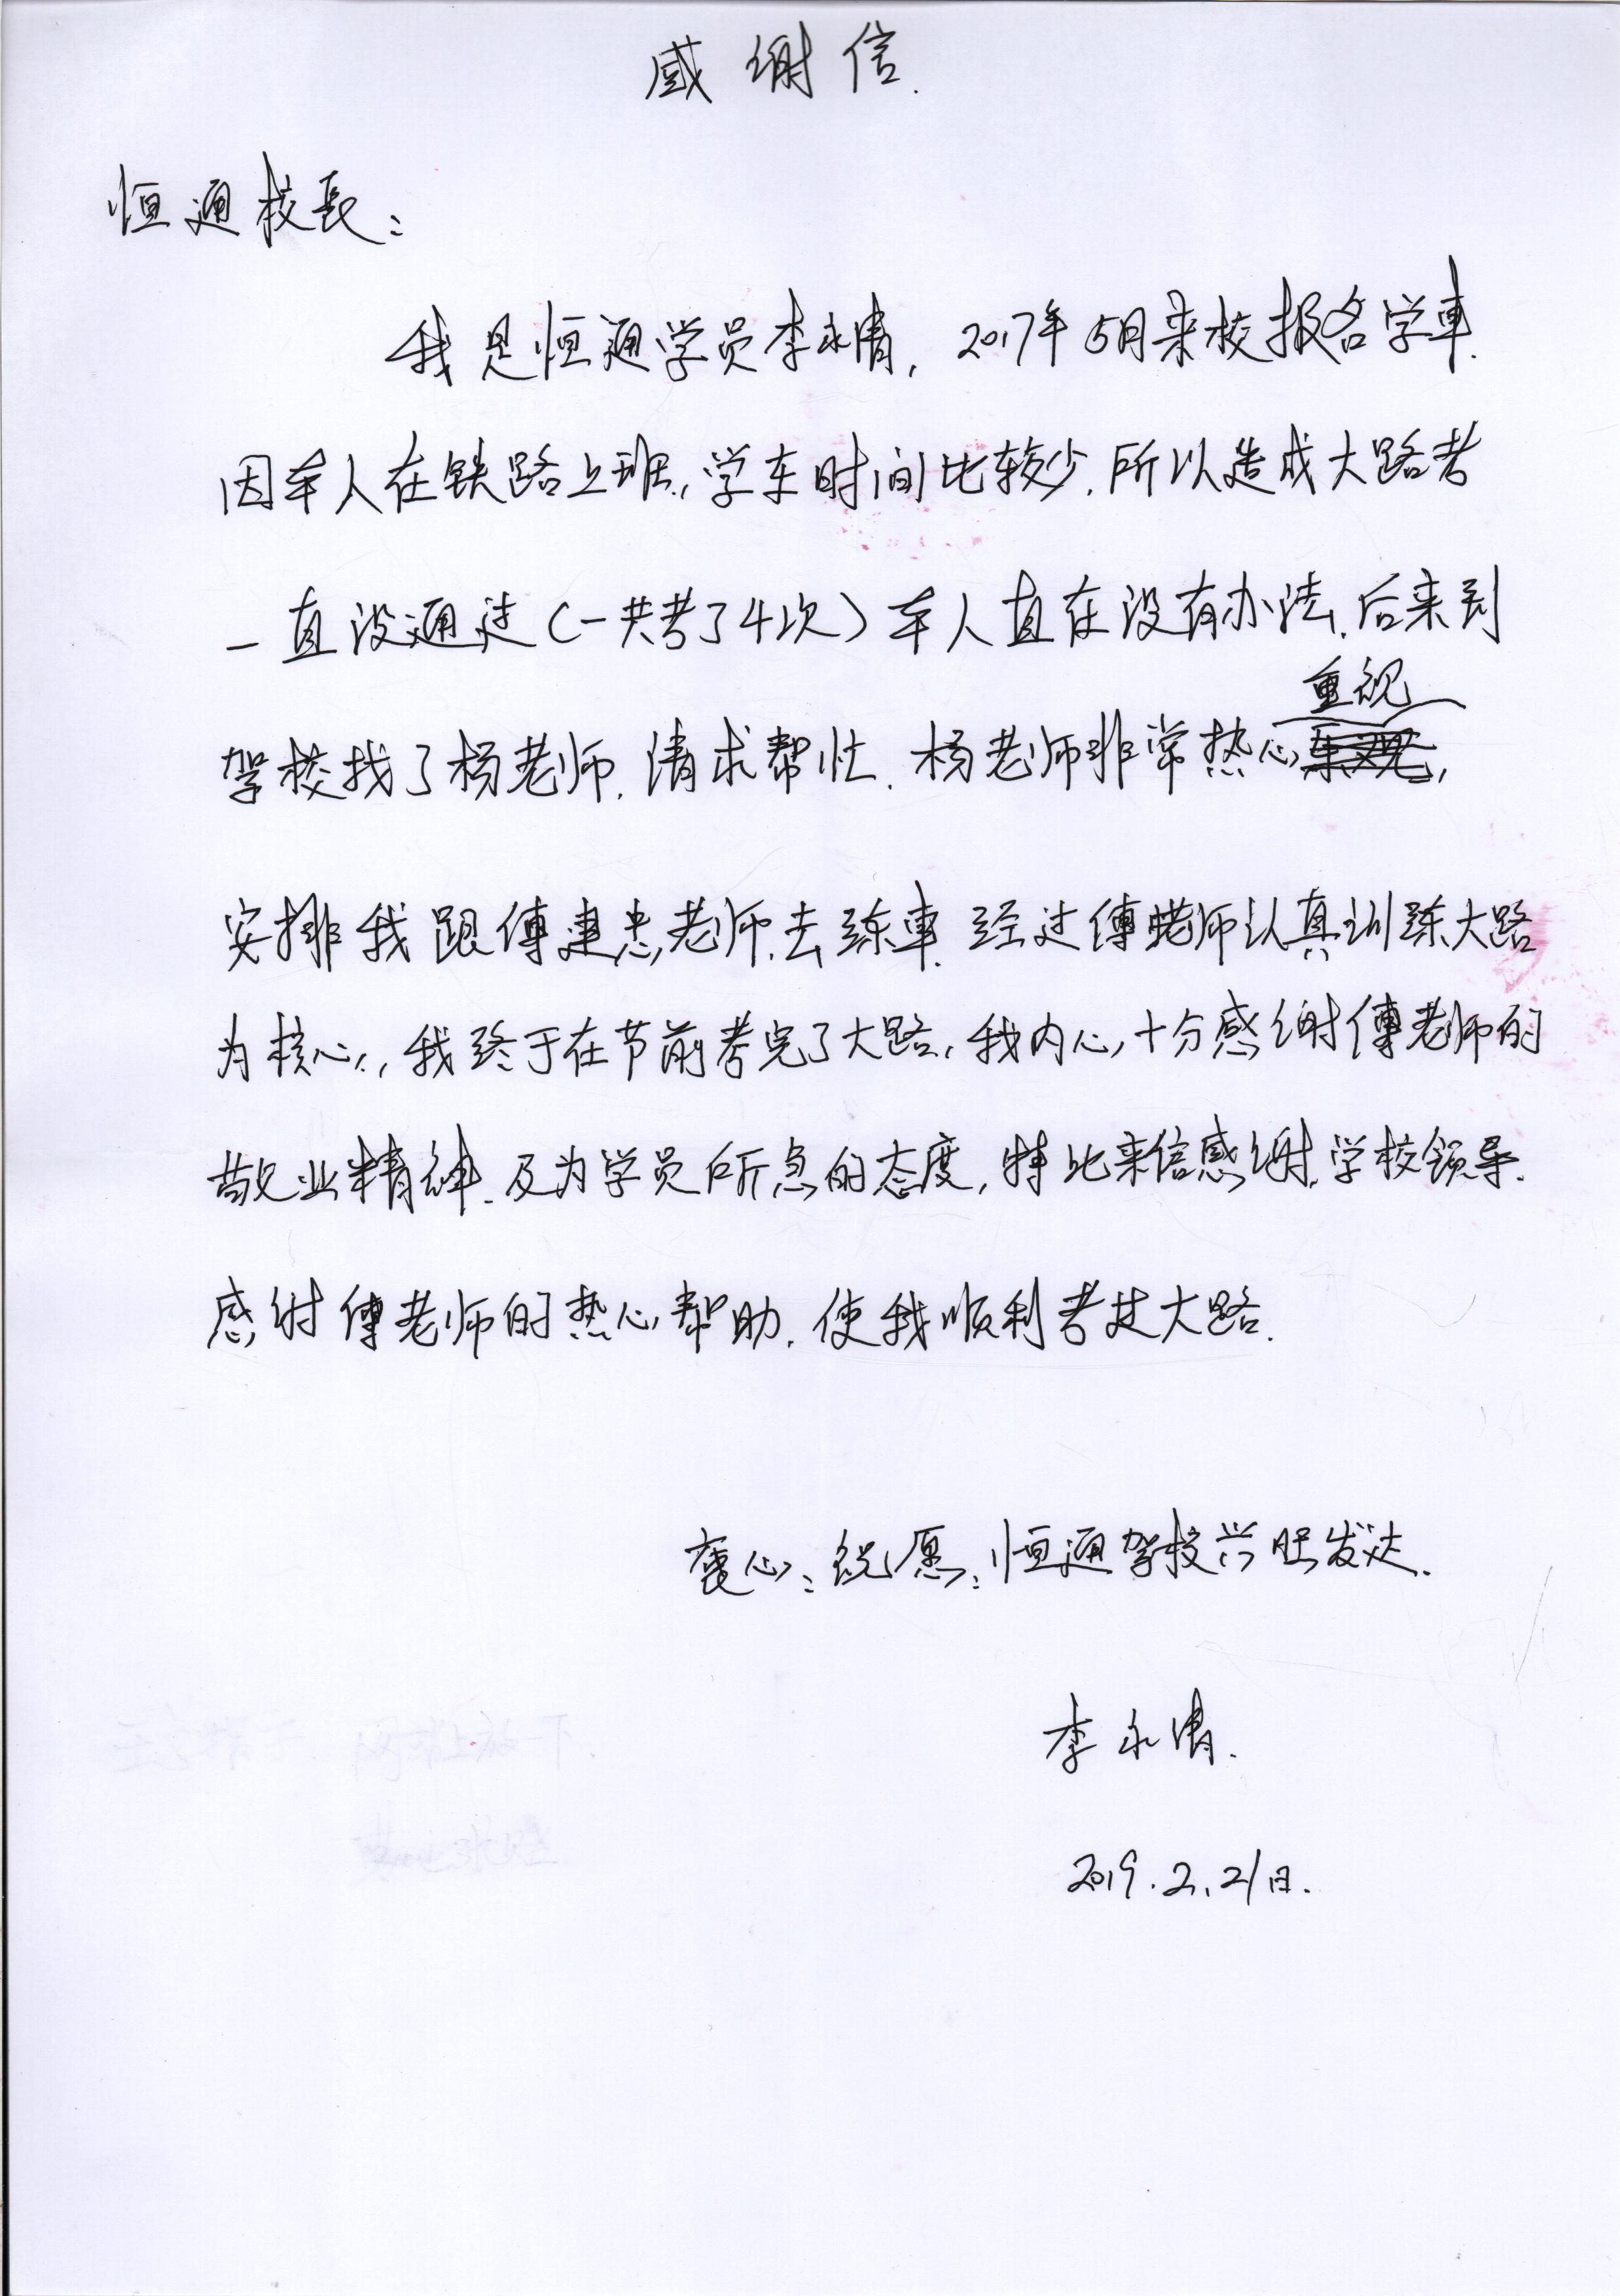 感谢信.
恒通校长:
我是恒通学员李永清, 2017年5月来校报名学車.
因本人在铁路上班, 学车时间比较少. 所以造成大路考
一直没通过(一共考了4次) 本人直在没有办法. 后来到
重视
驾校找了杨老师. 请求帮忙. 杨老师非常热心,
安排我跟傅建忠老师去练車. 经过傅老师认真训练大路
为核心, 我终于在节前考完了大路, 我内心十分感谢傅老师的
敬业精神. 及为学员所急的态度, 特比来信感谢. 学校领导.
感谢傅老师的热心帮助. 使我顺利考过大路.
衷心: 祝愿: 恒通驾校兴旺发达.
李永清.
2019.2.21日.